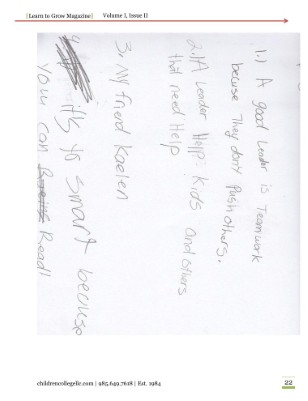 [Learn to Grow Magazine] Volume 1, Issue II
1.) A good Leader is Teamwork
becuse They don't Push others.
2. A Leader Help Kids and others
that need Help
3. My friend Kaelen
it's is smart because
you can Read!
childrencollegellc.com | 985.649.7618 | Est. 1984
22